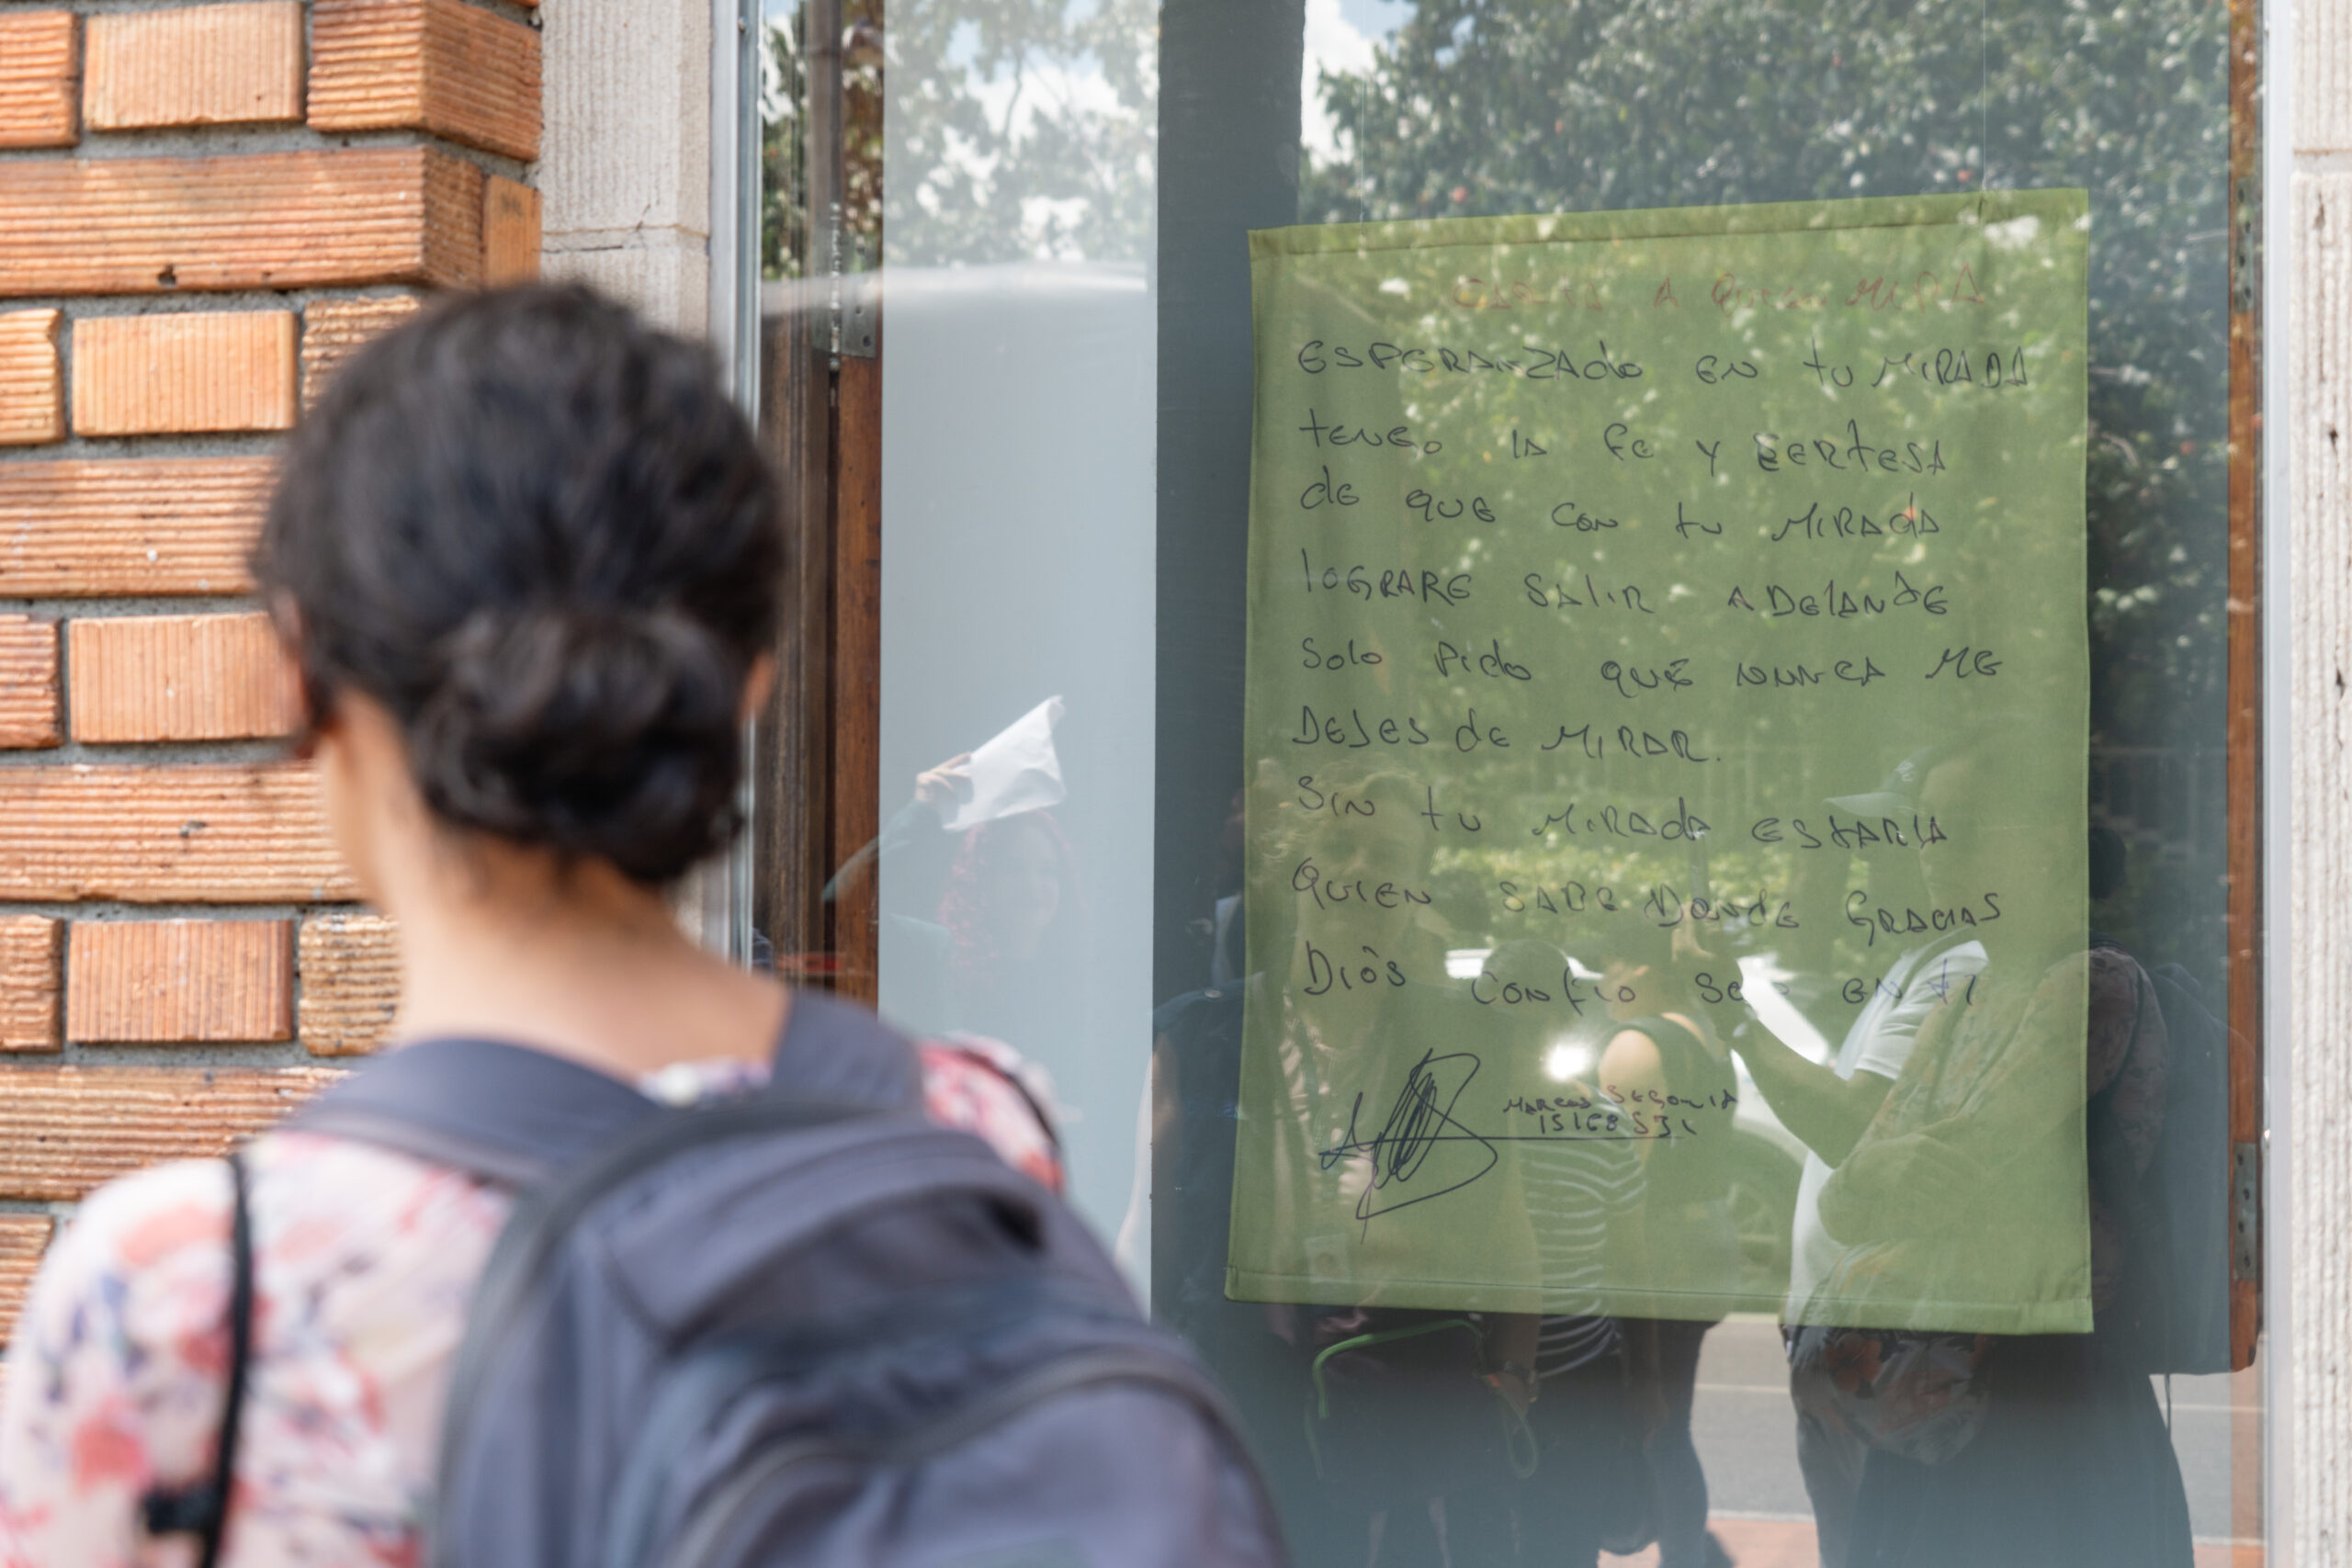 CARTA A QUIEN MIRA
ESPERANZADO EN tU MIRADA
tENGO lA fE Y SERTESA
dE QUE CON tU MIRAdA
lOGRARE SAlIR ADElANtE
Solo Pido QUE NUNCA ME
DEJES dE MIRAR.
SIN tU MIRAdA EStARIA
QUIEN SABE DONdE GRACIAS
DIOS CONfIO EN tI
MARCOS SEGOVIA